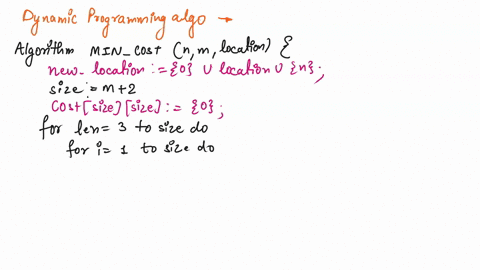 Dynamic Programming algo →
Algorithm MIN_COST (n, m, location) {
new_location := {0} ∪ location ∪ {n};
size := m+2
Cost[size][size] := {0};
for len = 3 to size do
for i = 1 to size do